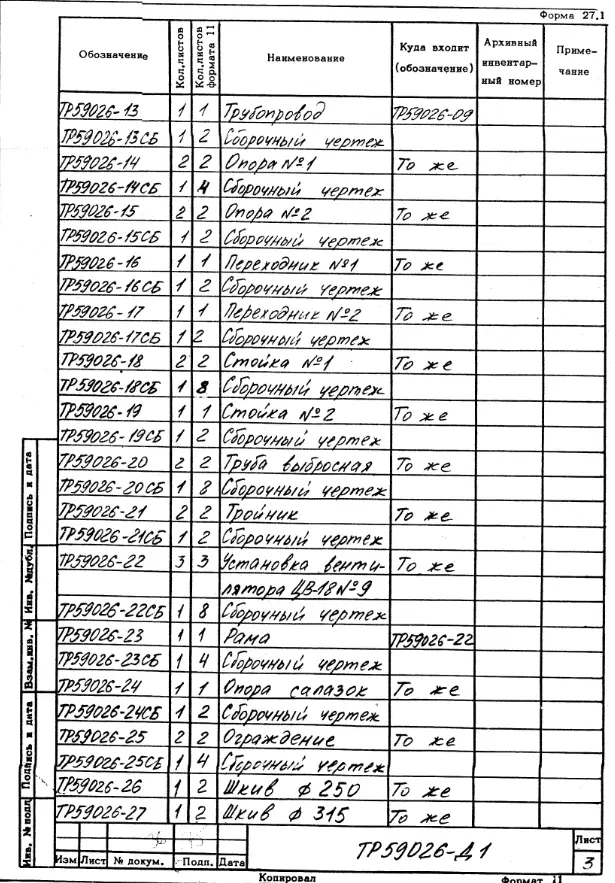 Форма 27.1
Обозначение Кол.листов Кол.листов формата 11 Наименование Куда входит (обозначение) Архивный инвентар- ный номер Приме- чание
ТР59026-13 1 1 Трубопровод ТР59026-09
ТР59026-13СБ 1 2 Сборочный чертеж
ТР59026-14 2 2 Опора №1 То же
ТР59026-14СБ 1 4 Сборочный чертеж
ТР59026-15 2 2 Опора №2 То же
ТР59026-15СБ 1 2 Сборочный чертеж
ТР59026-16 1 1 Переходник №1 То же
ТР59026-16СБ 1 2 Сборочный чертеж
ТР59026-17 1 1 Переходник №2 То же
ТР59026-17СБ 1 2 Сборочный чертеж
ТР59026-18 2 2 Стойка №1 То же
ТР59026-18СБ 1 8 Сборочный чертеж
ТР59026-19 1 1 Стойка №2 То же
ТР59026-19СБ 1 2 Сборочный чертеж
ТР59026-20 2 2 Труба выбросная То же
ТР59026-20СБ 1 8 Сборочный чертеж
ТР59026-21 2 2 Тройник То же
ТР59026-21СБ 1 2 Сборочный чертеж
ТР59026-22 3 3 Установка венти- То же
лятора ЦВ-18 №9
ТР59026-22СБ 1 8 Сборочный чертеж
ТР59026-23 1 1 Рама ТР59026-22
ТР59026-23СБ 1 4 Сборочный чертеж
ТР59026-24 1 1 Опора салазок То же
ТР59026-24СБ 1 2 Сборочный чертеж
ТР59026-25 2 2 Ограждение То же
ТР59026-25СБ 1 4 Сборочный чертеж
ТР59026-26 1 2 Шкив ф 250 То же
ТР59026-27 1 2 Шкив ф 315 То же
Подпись и дата
Инв. №дубл.
Взам.инв. №
Подпись и дата
Инв. №подл
Изм Лист № докум. Подп. Дата
ТР59026-Д1
Лист
3
Копировал Формат 11